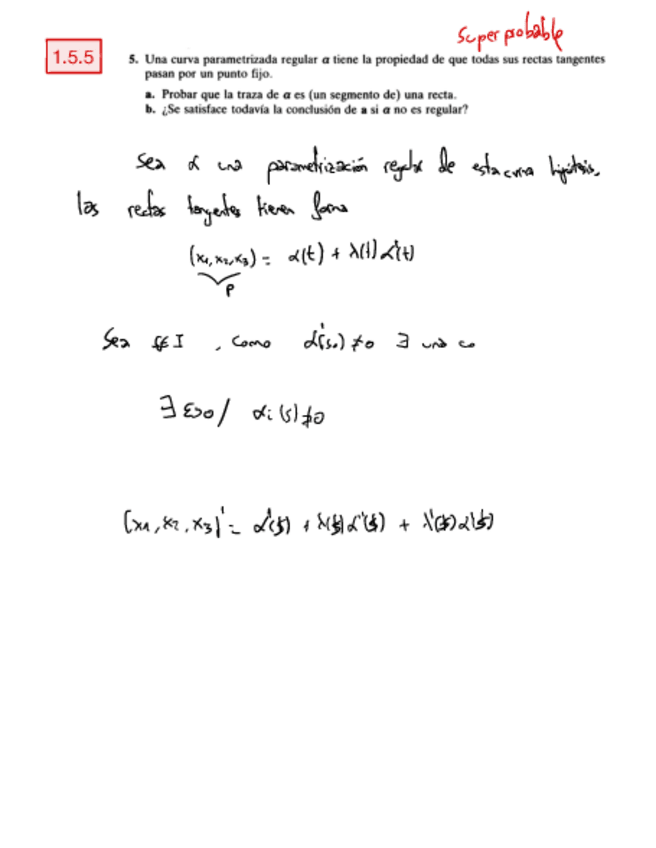 Super probable
1.5.5
5. Una curva parametrizada regular α tiene la propiedad de que todas sus rectas tangentes
pasan por un punto fijo.
a. Probar que la traza de α es (un segmento de) una recta.
b. ¿Se satisface todavía la conclusión de a si α no es regular?
Sea α una parametrización regular de esta curva hipótesis.
las rectas tangentes tienen forma
(x₁, x₂, x₃) = α(t) + λ(t) α'(t)
P
Sea I, como α'(s₀) ≠ 0 ∃ una co
∃ ε>0 / αi (s) ≠0
(x₁, x₂, x₃)' = α'(s) + λ(s) α''(s) + λ'(s) α'(s)